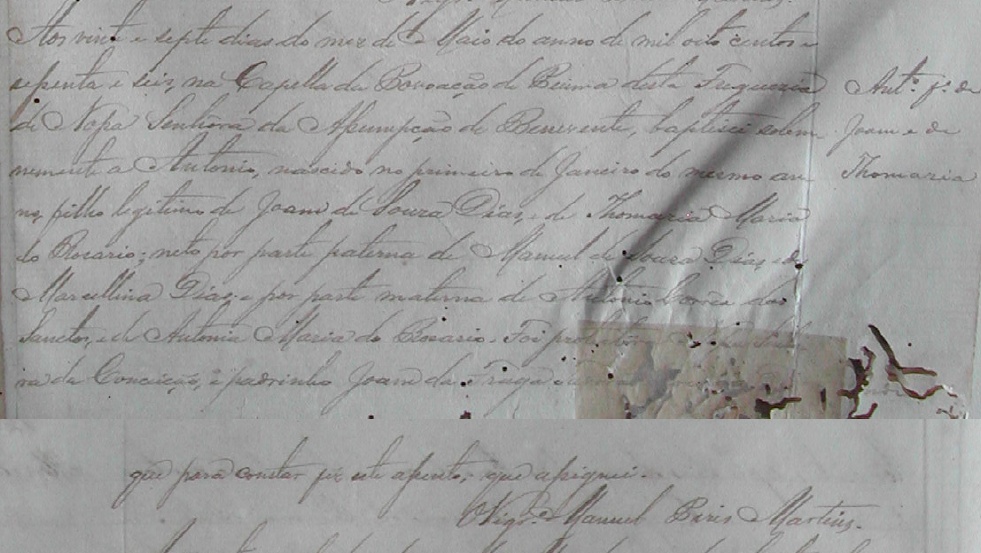 Aos vinte e septe dias do mez de Maio do anno de mil oito centos e
sessenta e seis, na Capella da Povoação de Piuma desta Freguezia
de Nossa Senhora da Assumpção de Benevente, baptisei solem
nemente a Antonio, nascido no primeiro de Janeiro do mesmo an
no, filho legitimo de Joam de Souza Dias, e de Thomazia Maria
do Rosario; neto por parte paterna de Manuel de Souza Dias, e de
Marcellina Dias; e por parte materna de Antonio Corrêa dos
Sanctos, e de Antonia Maria do Rosario. Foi
ra da Conceição, e padrinho Joam da Fraga
Antº. fº. de
Joam e de
Thomazia
que para constar fiz este assento, que assignei.
O Vigrº. Manuel Pires Martins.